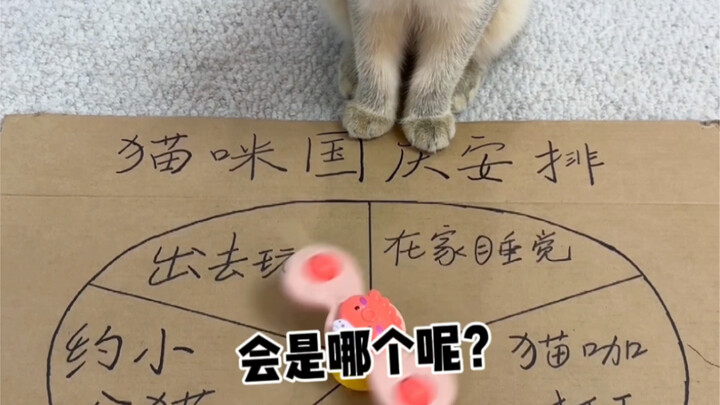 猫咪国庆安排
出去玩
在家睡觉
约小
猫咖
会是哪个呢?